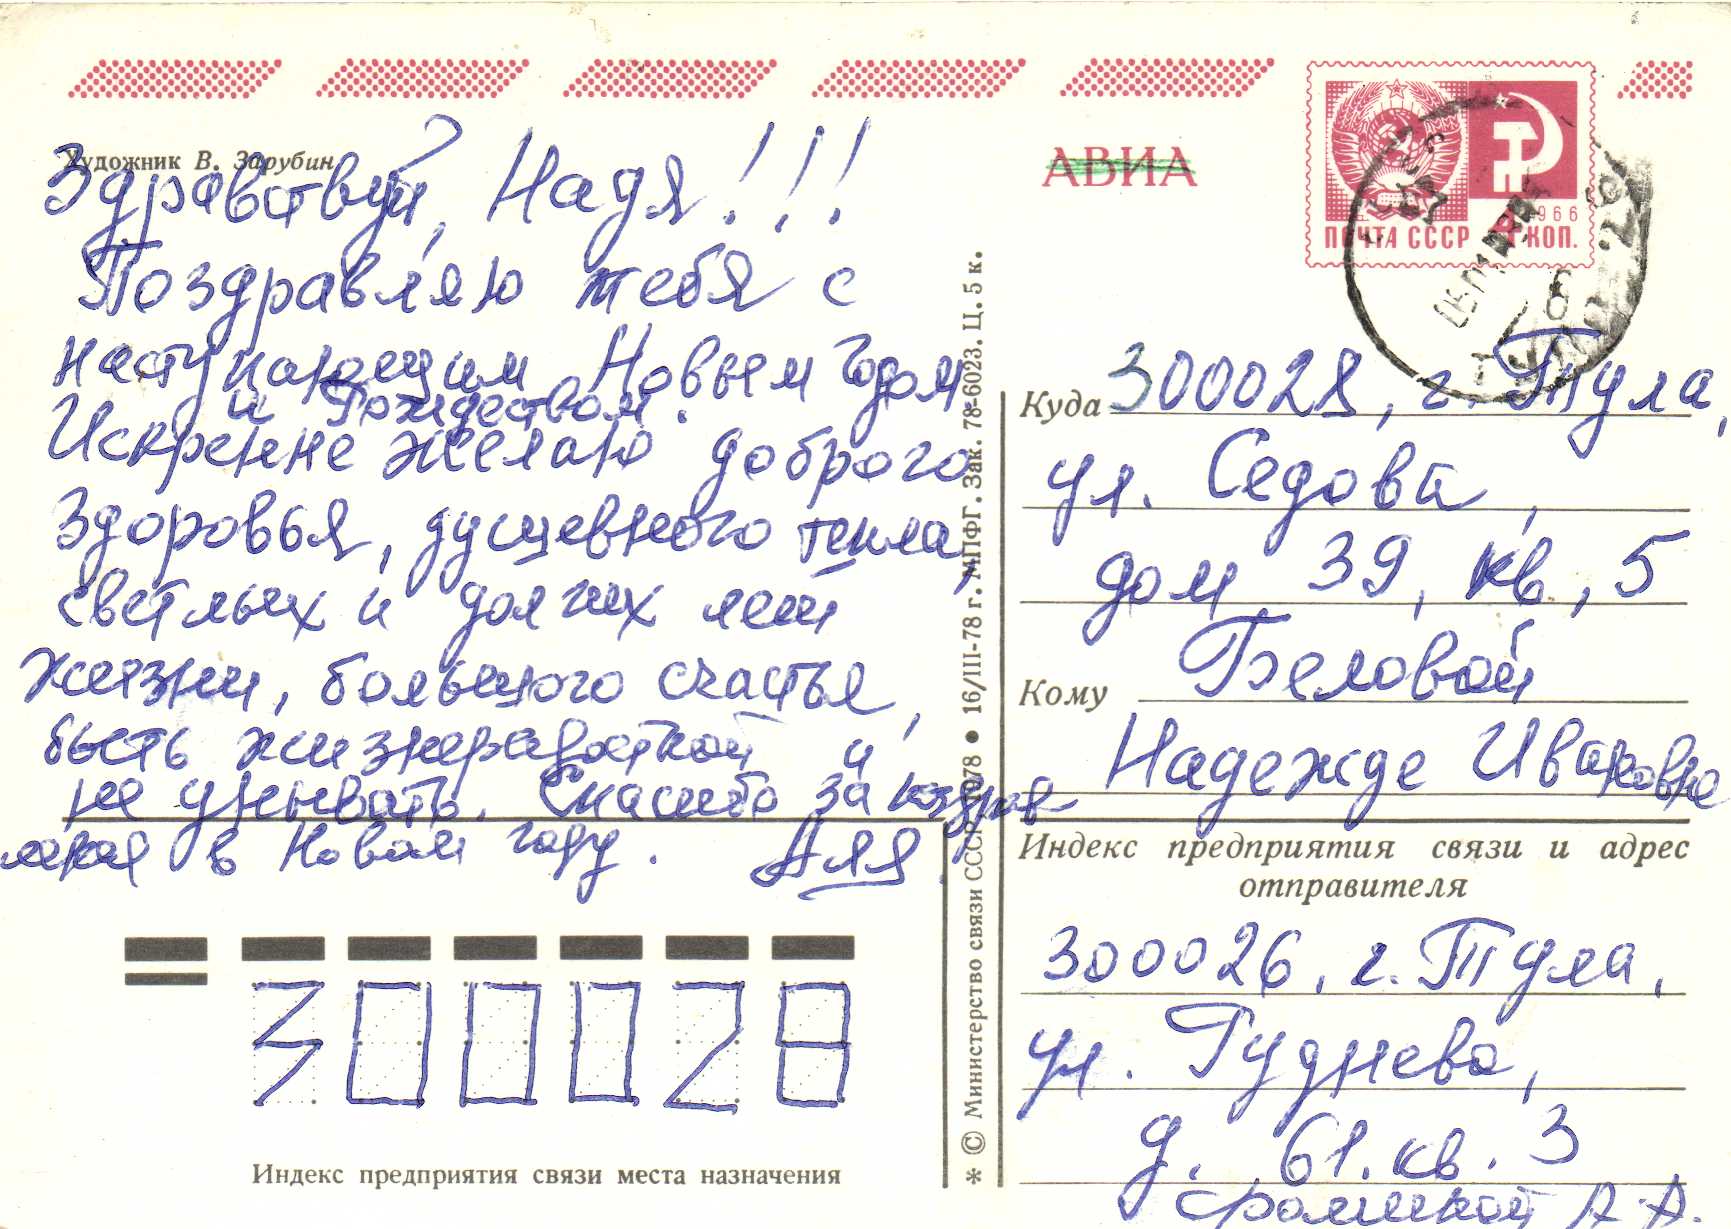 Художник В. Зарубин
Здравствуй, Надя!!!
Поздравляю тебя с
наступающим Новым Годом
и Рождеством.
Искренне желаю доброго
здоровья, душевного тепла,
светлых и долгих лет
жизни, большого счастья,
быть жизнерадостной и
не унывать. Спасибо за поздрав
ления в Новом году. Аля.
300028
Индекс предприятия связи места назначения
* © Министерство связи СССР. 1978 ● 16/III-78 г. МПФГ. Зак. 78-6023. Ц. 5 к.
АВИА
1966
ПОЧТА СССР 4 КОП.
Куда 300028, г. Тула,
ул. Седова,
дом 39, кв, 5
Кому Беловой
Надежде Ивановне
Индекс предприятия связи и адрес
отправителя
300026, г. Тула,
ул. Руднева,
д. 61. кв. 3
А. А.